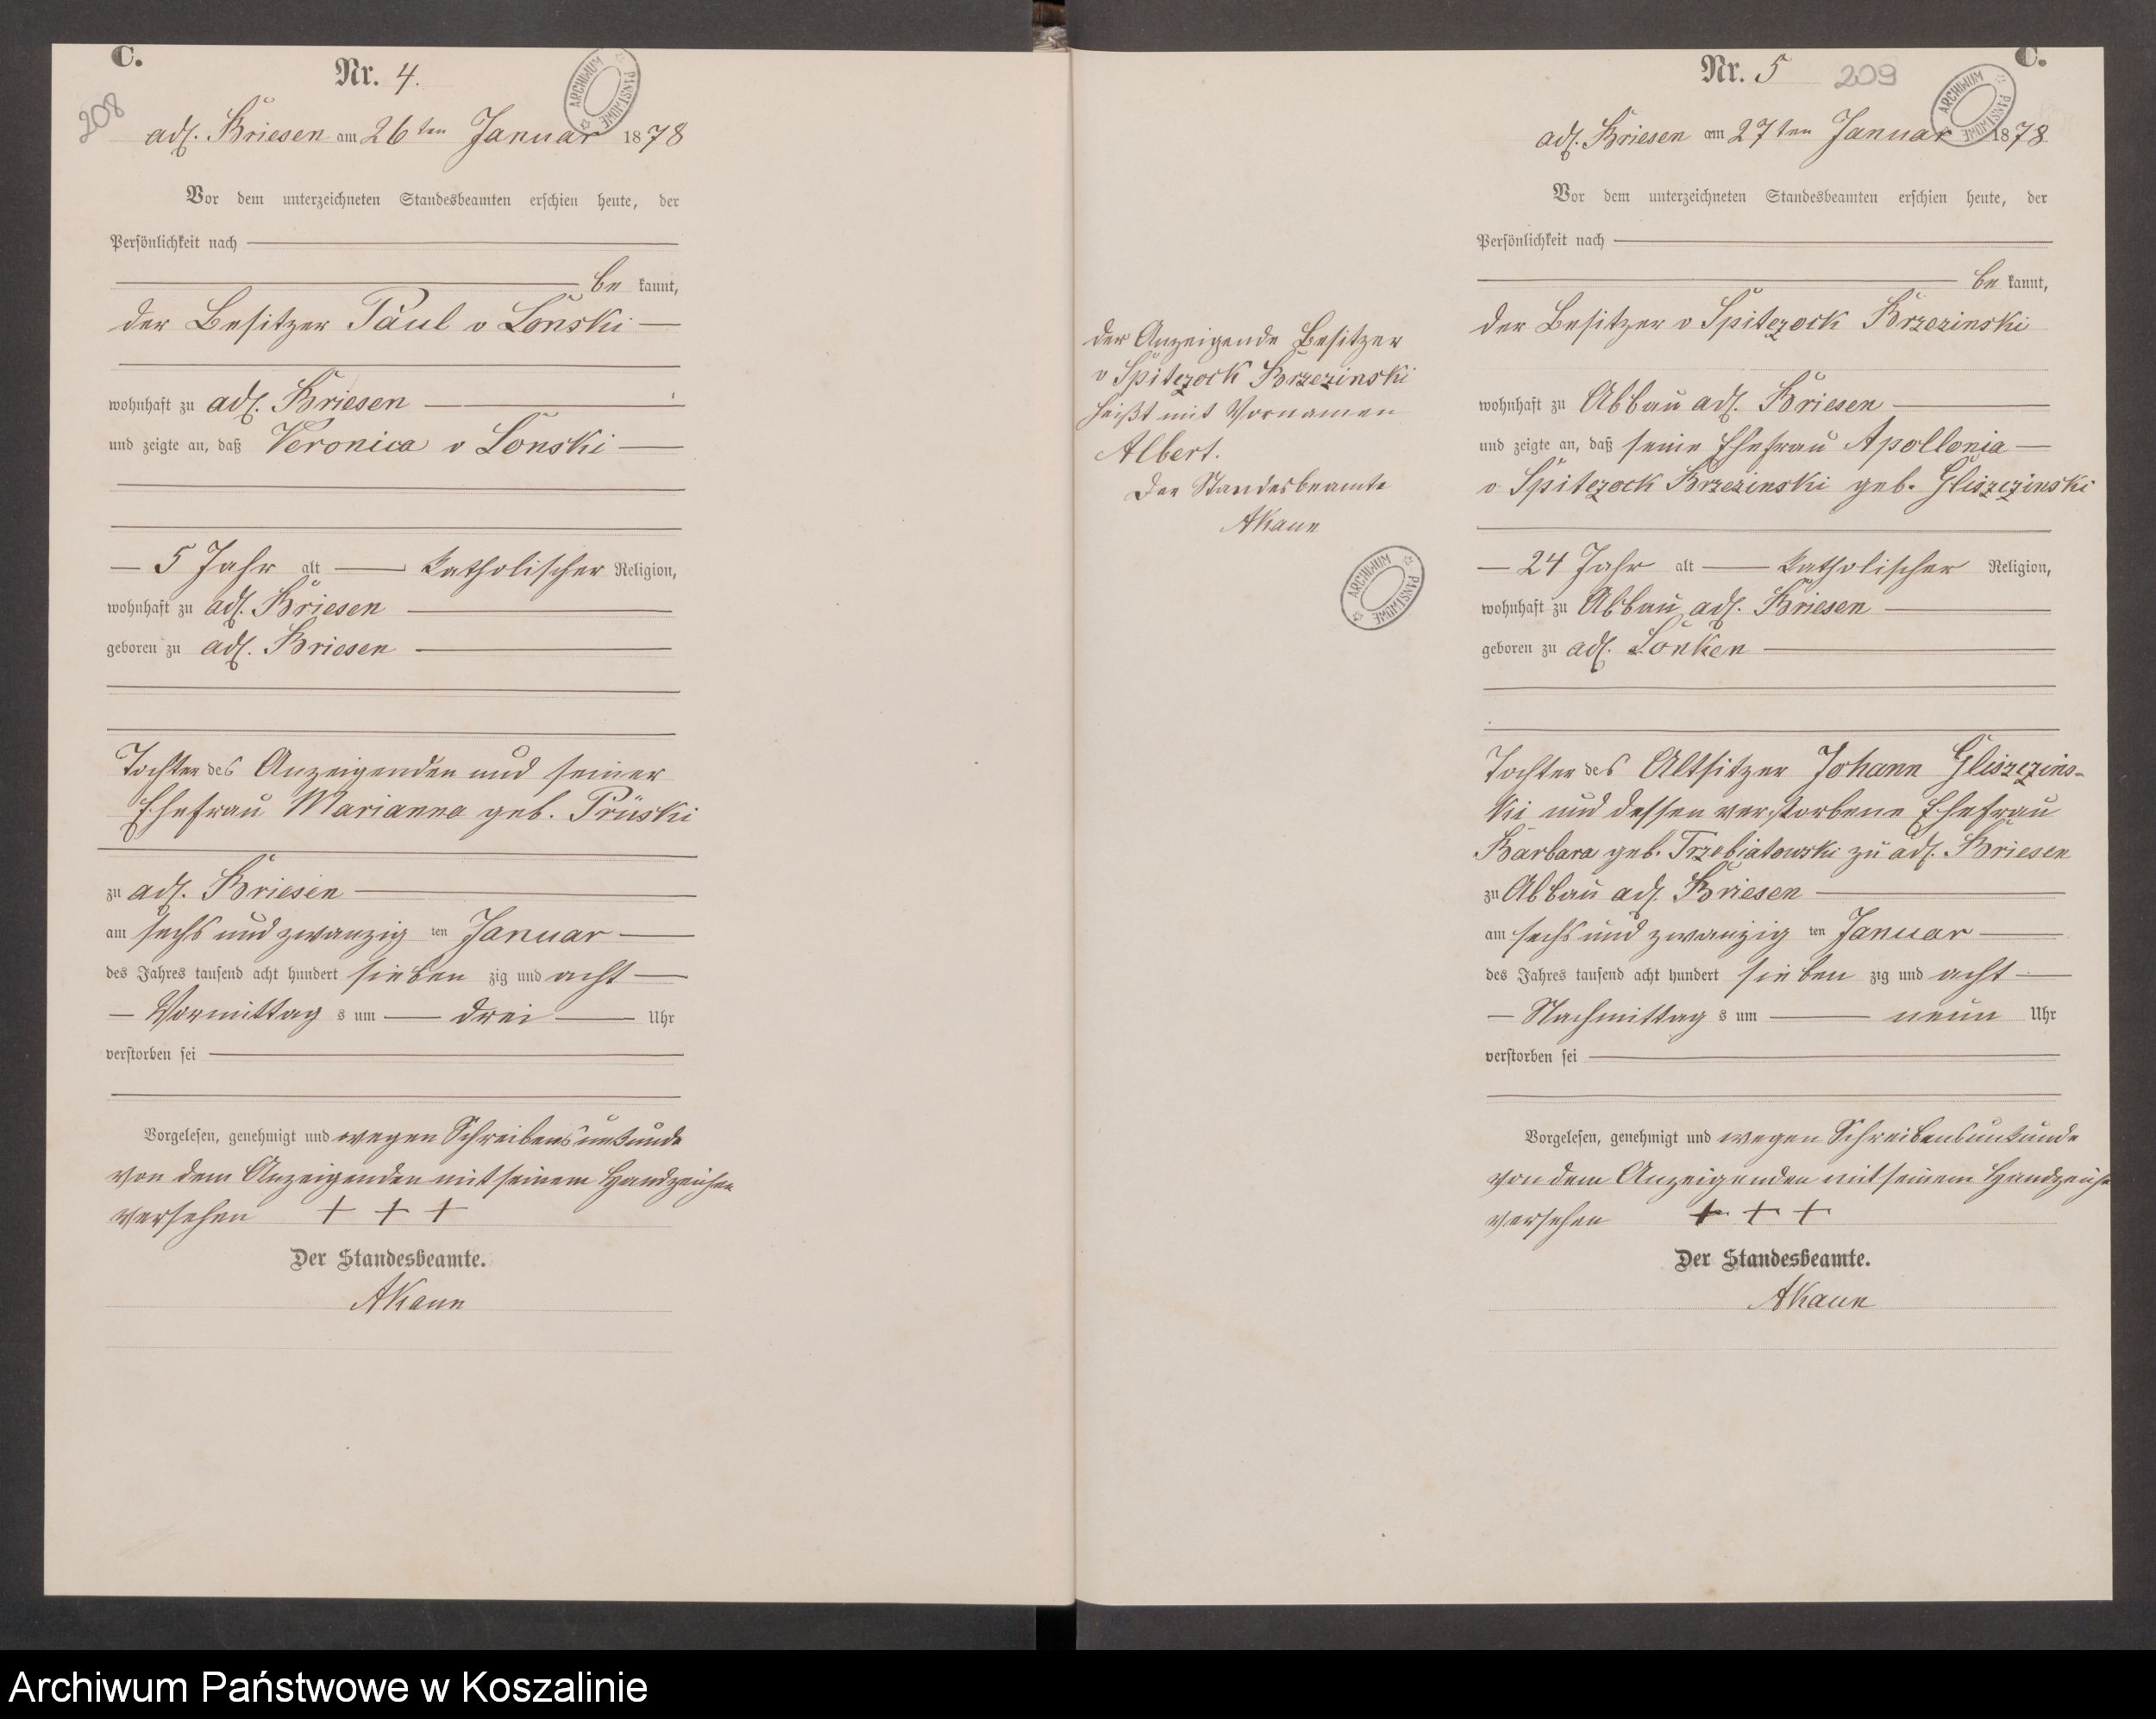 C.
Nr. 4.
208
ARCHIWUM PAŃSTWOWE
adl. Briesen am 26ten Januar 1878
Vor dem unterzeichneten Standesbeamten erschien heute, der
Persönlichkeit nach
be kannt,
der Besitzer Paul v Lonski
wohnhaft zu adl. Briesen
und zeigte an, daß Veronica v Lonski
5 Jahr alt katholischer Religion,
wohnhaft zu adl. Briesen
geboren zu adl. Briesen
Tochter des Anzeigenden und seiner
Ehefrau Marianna geb. Prüski
zu adl. Briesen
am sechs und zwanzig ten Januar
des Jahres tausend acht hundert sieben zig und acht
Vormittag s um drei Uhr
verstorben sei
Vorgelesen, genehmigt und wegen Schreibensunkunde
von dem Anzeigenden mit seinem Handzeichen
versehen + + +
Der Standesbeamte.
der Anzeigende Besitzer
v Spiczock Brzezinski
heißt mit Vornamen
Albert.
Der Standesbeamte
ARCHIWUM PAŃSTWOWE
C.
Nr. 5
209
ARCHIWUM PAŃSTWOWE
adl. Briesen am 27ten Januar 1878
Vor dem unterzeichneten Standesbeamten erschien heute, der
Persönlichkeit nach
be kannt,
der Besitzer v Spiczock Brzezinski
wohnhaft zu Abbau adl. Briesen
und zeigte an, daß seine Ehefrau Apollonia
v Spiczock Brzezinski geb. Gliszczinski
24 Jahr alt katholischer Religion,
wohnhaft zu Abbau adl. Briesen
geboren zu adl. Lonken
Tochter des Altsitzer Johann Gliszczins-
ki und dessen verstorbene Ehefrau
Barbara geb. Trzebiatowski zu adl. Briesen
zu Abbau adl. Briesen
am sechs und zwanzig ten Januar
des Jahres tausend acht hundert sieben zig und acht
Nachmittag s um neun Uhr
verstorben sei
Vorgelesen, genehmigt und wegen Schreibensunkunde
von dem Anzeigenden mit seinem Handzeichen
versehen + + +
Der Standesbeamte.
Archiwum Państwowe w Koszalinie